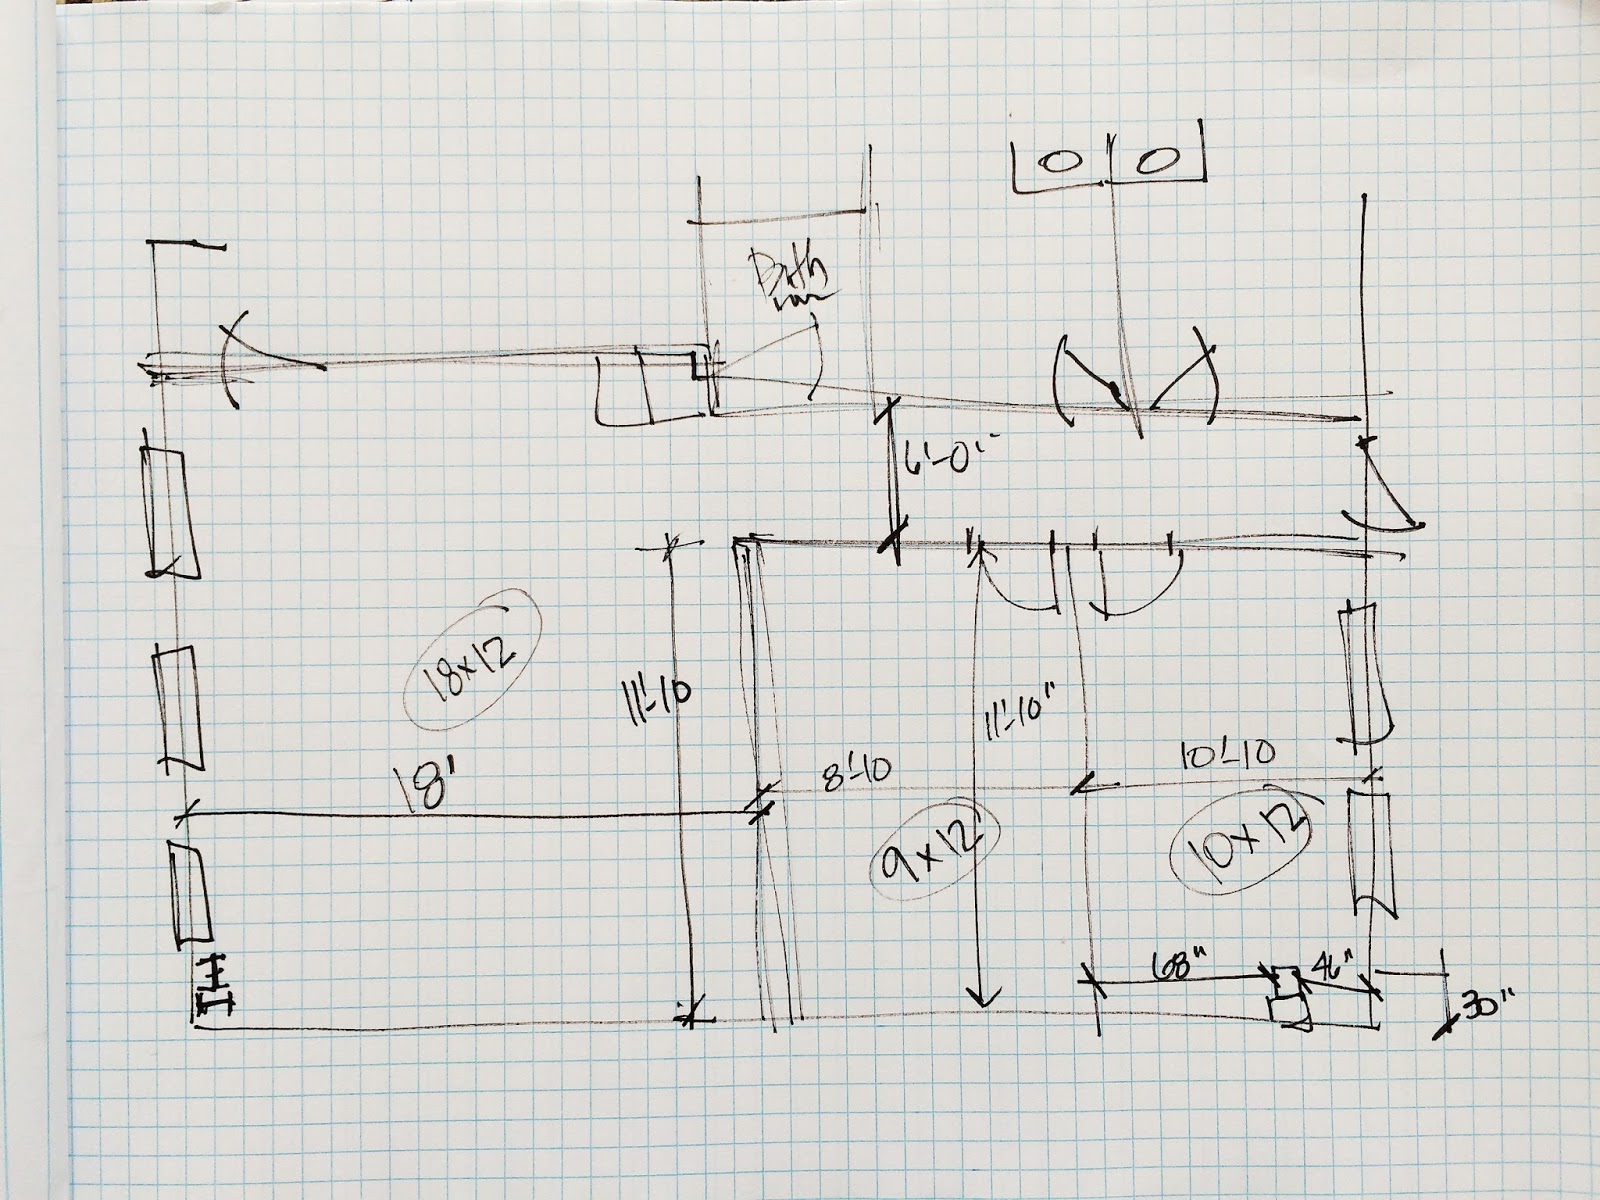 Bath
6'-0"
18x12
11'-10
11'-10"
18'
8'-10
10'-10
9x12
10x12
68"
46"
30"